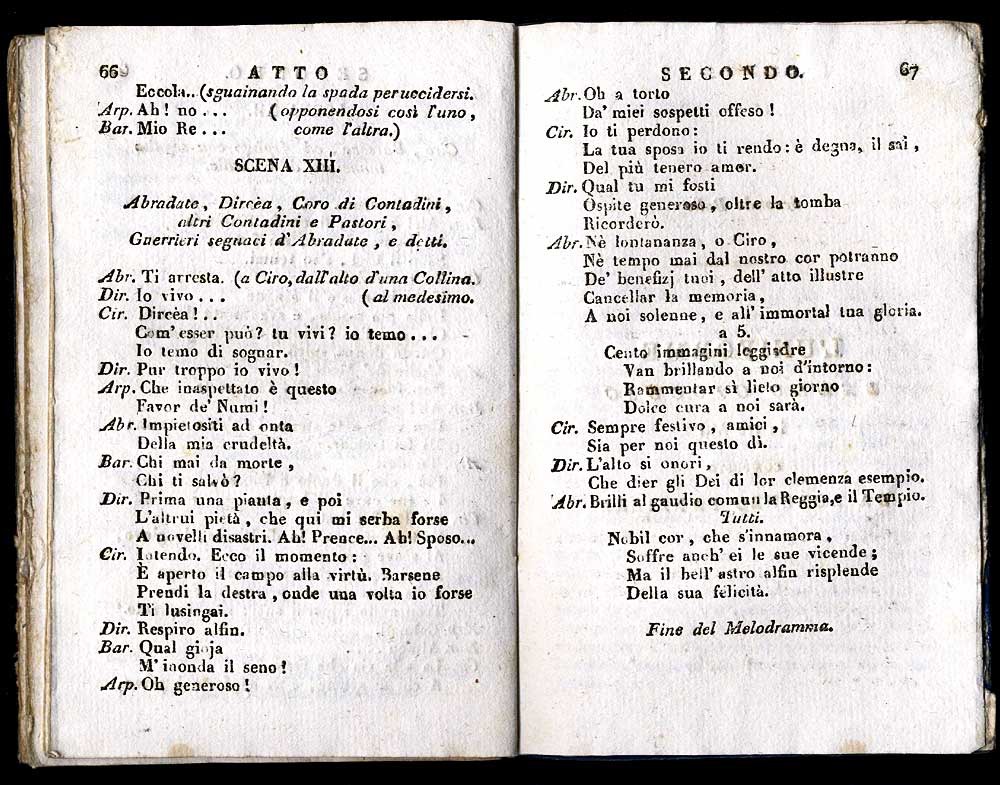 66 ATTO
Eccola.. (sguainando la spada per uccidersi.
Arp. Ah! no... (opponendosi così l'uno,
Bar. Mio Re... come l'altra.)
SCENA XIII.
Abradate, Dircèa, Coro di Contadini,
altri Contadini e Pastori,
Guerrieri seguaci d'Abradate, e detti.
Abr. Ti arresta. (a Ciro, dall'alto d'una Collina.
Dir. Io vivo... (al medesimo.
Cir. Dircèa!..
Com' esser può? tu vivi? io temo...
Io temo di sognar.
Dir. Pur troppo io vivo!
Arp. Che inaspettato è questo
Favor de' Numi!
Abr. Impietositi ad onta
Della mia crudeltà.
Bar. Chi mai da morte,
Chi ti salvò?
Dir. Prima una pianta, e poi
L'altrui pietà, che qui mi serba forse
A novelli disastri. Ah! Prence... Ah! Sposo...
Cir. Intendo. Ecco il momento:
È aperto il campo alla virtù. Barsene
Prendi la destra, onde una volta io forse
Ti lusingai.
Dir. Respiro alfin.
Bar. Qual gioja
M' inonda il seno!
Arp. Oh generoso!
SECONDO. 67
Abr. Oh a torto
Da' miei sospetti offeso!
Cir. Io ti perdono:
La tua sposa io ti rendo: è degna, il sai,
Del più tenero amor.
Dir. Qual tu mi fosti
Ospite generoso, oltre la tomba
Ricorderò.
Abr. Nè lontananza, o Ciro,
Nè tempo mai dal nostro cor potranno
De' benefizj tuoi, dell' atto illustre
Cancellar la memoria,
A noi solenne, e all' immortal tua gloria.
a 5.
Cento immagini leggiadre
Van brillando a noi d'intorno:
Rammentar sì lieto giorno
Dolce cura a noi sarà.
Cir. Sempre festivo, amici,
Sia per noi questo dì.
Dir. L'alto si onori,
Che dier gli Dei di lor clemenza esempio.
Abr. Brilli al gaudio comun la Reggia, e il Tempio.
Tutti.
Nobil cor, che s'innamora,
Soffre anch' ei le sue vicende;
Ma il bell' astro alfin risplende
Della sua felicità.
Fine del Melodramma.